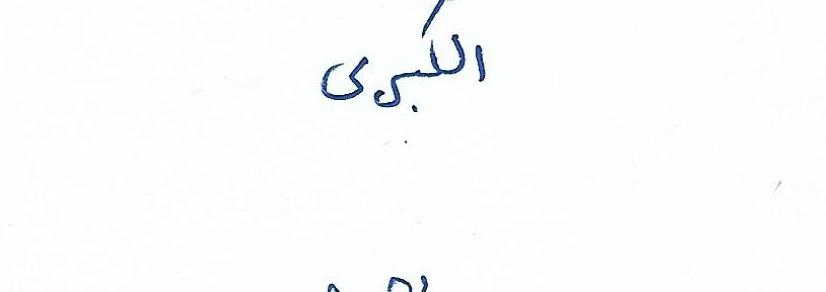 الكبرى